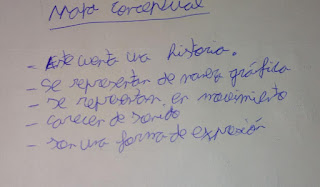 Mapa conceptual
- Arte cuenta una historia.
- Se representan de manera gráfica
- Se representan en movimiento
- Carecen de sonido
- Son una forma de expresión